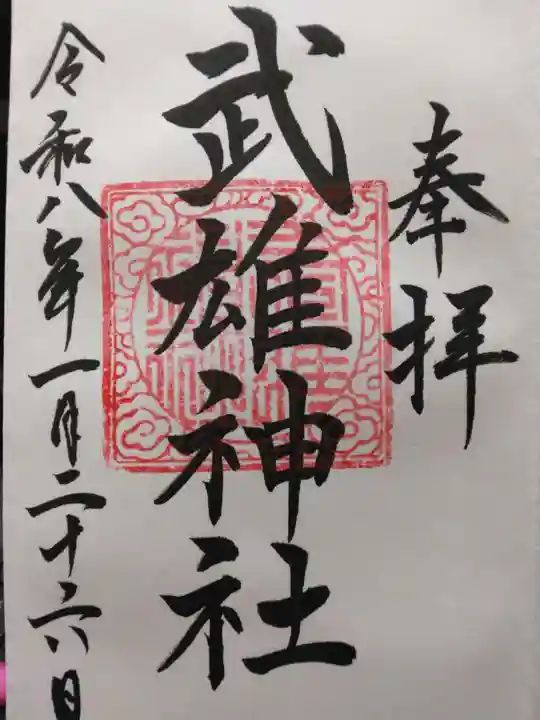 奉拝
武雄神社
令和八年一月二十六日